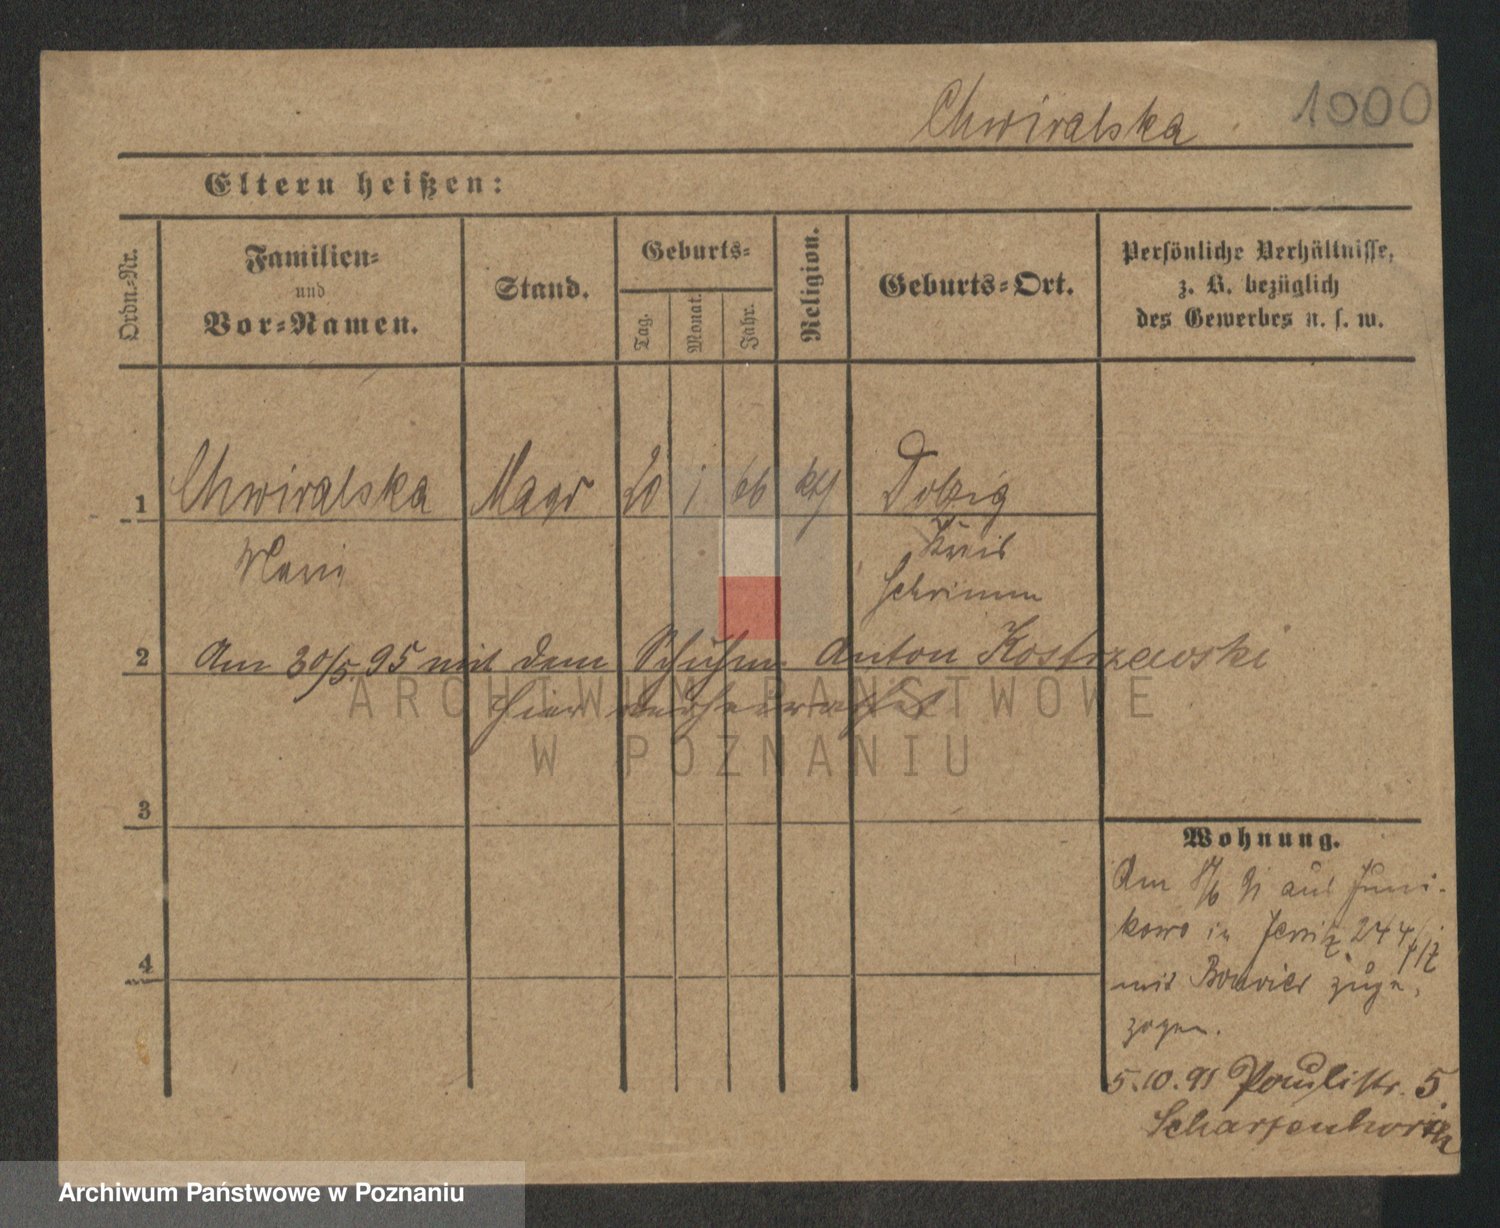 Chwiralska 1000
Eltern heißen:
Ordn.-Nr.
Familien-
und
Vor-Namen.
Stand.
Geburts-
Tag.
Monat.
Jahr.
Religion.
Geburts-Ort.
Persönliche Verhältnisse,
z. B. bezüglich
des Gewerbes u. s. w.
1 Chwiralska Magd 20 1 66 kth Dolzig
Marie Kreis
Schrimm
2 Am 30/5. 95 mit dem Schuhm. Anton Kostrzewski
hier verheirathet
3
4
Wohnung.
Am 91 aus Juni-
kowo in Jersitz 244
mit zuge-
zogen.
5.10.91 Paulistr. 5.
ARCHIWUM PAŃSTWOWE
W POZNANIU
Archiwum Państwowe w Poznaniu